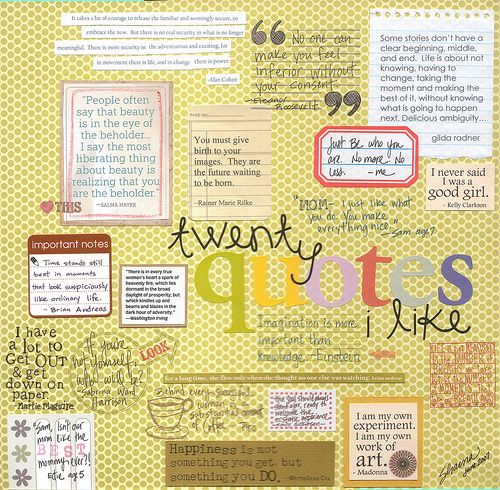 It takes a lot of courage to release the familiar and seemingly secure, to
embrace the new. But there is no real security in what is no longer
meaningful. There is more security in the adventurous and exciting, for
in movement there is life, and in change there is power.
- Alan Cohen
“ No one can
make you feel
inferior without
your consent.
-Eleanor
Roosevelt ”
Some stories don't have a
clear beginning, middle,
and end. Life is about not
knowing, having to
change, taking the
moment and making the
best of it, without knowing
what is going to happen
next. Delicious ambiguity...
gilda radner
"People often
say that beauty
is in the eye of
the beholder...
I say the most
liberating thing
about beauty is
realizing that you
are the beholder."
—SALMA HAYEK
THIS
PAGE NO.
You must give
birth to your
images. They are
the future waiting
to be born.
-Rainer Marie Rilke
just Be who you
are. No more. No
less. - me
I never said
I was a
good girl.
- Kelly Clarkson
"MOM- I just like what
you do. You make
everything nice."
-Sam age 7
twenty
quotes
i like
important notes
Time stands still
best in moments
that look suspiciously
like ordinary life.
- Brian Andreas
"There is in every true
woman's heart a spark of
heavenly fire, which lies
dormant in the broad
daylight of prosperity, but
which kindles up and
beams and blazes in the
dark hour of adversity."
—Washington Irving
Imagination is more
important than
knowledge. -Einstein
I have
a lot to
Get OUT
& get
down on
paper.
Martie Maguire
If you're
not yourself,
who will you
be?
-Sabrina Ward
Harrison
LOOK
for a long time, she flew only when she thought no one else was watching. brian andreas
Behind every successful
woman is a
substantial amount
of coffee.
the soul should always
stand ajar, ready to
welcome the
ecstatic experience
emily dickinson
I am my own
experiment.
I am my own
work of
art.
- Madonna
"Sam, Isn't our
mom like the
BEST
mommy ever?!
Edie age 5
Happiness is not
something you get, but
something you DO.
-Marcelene Cox
Shanna
June 2007